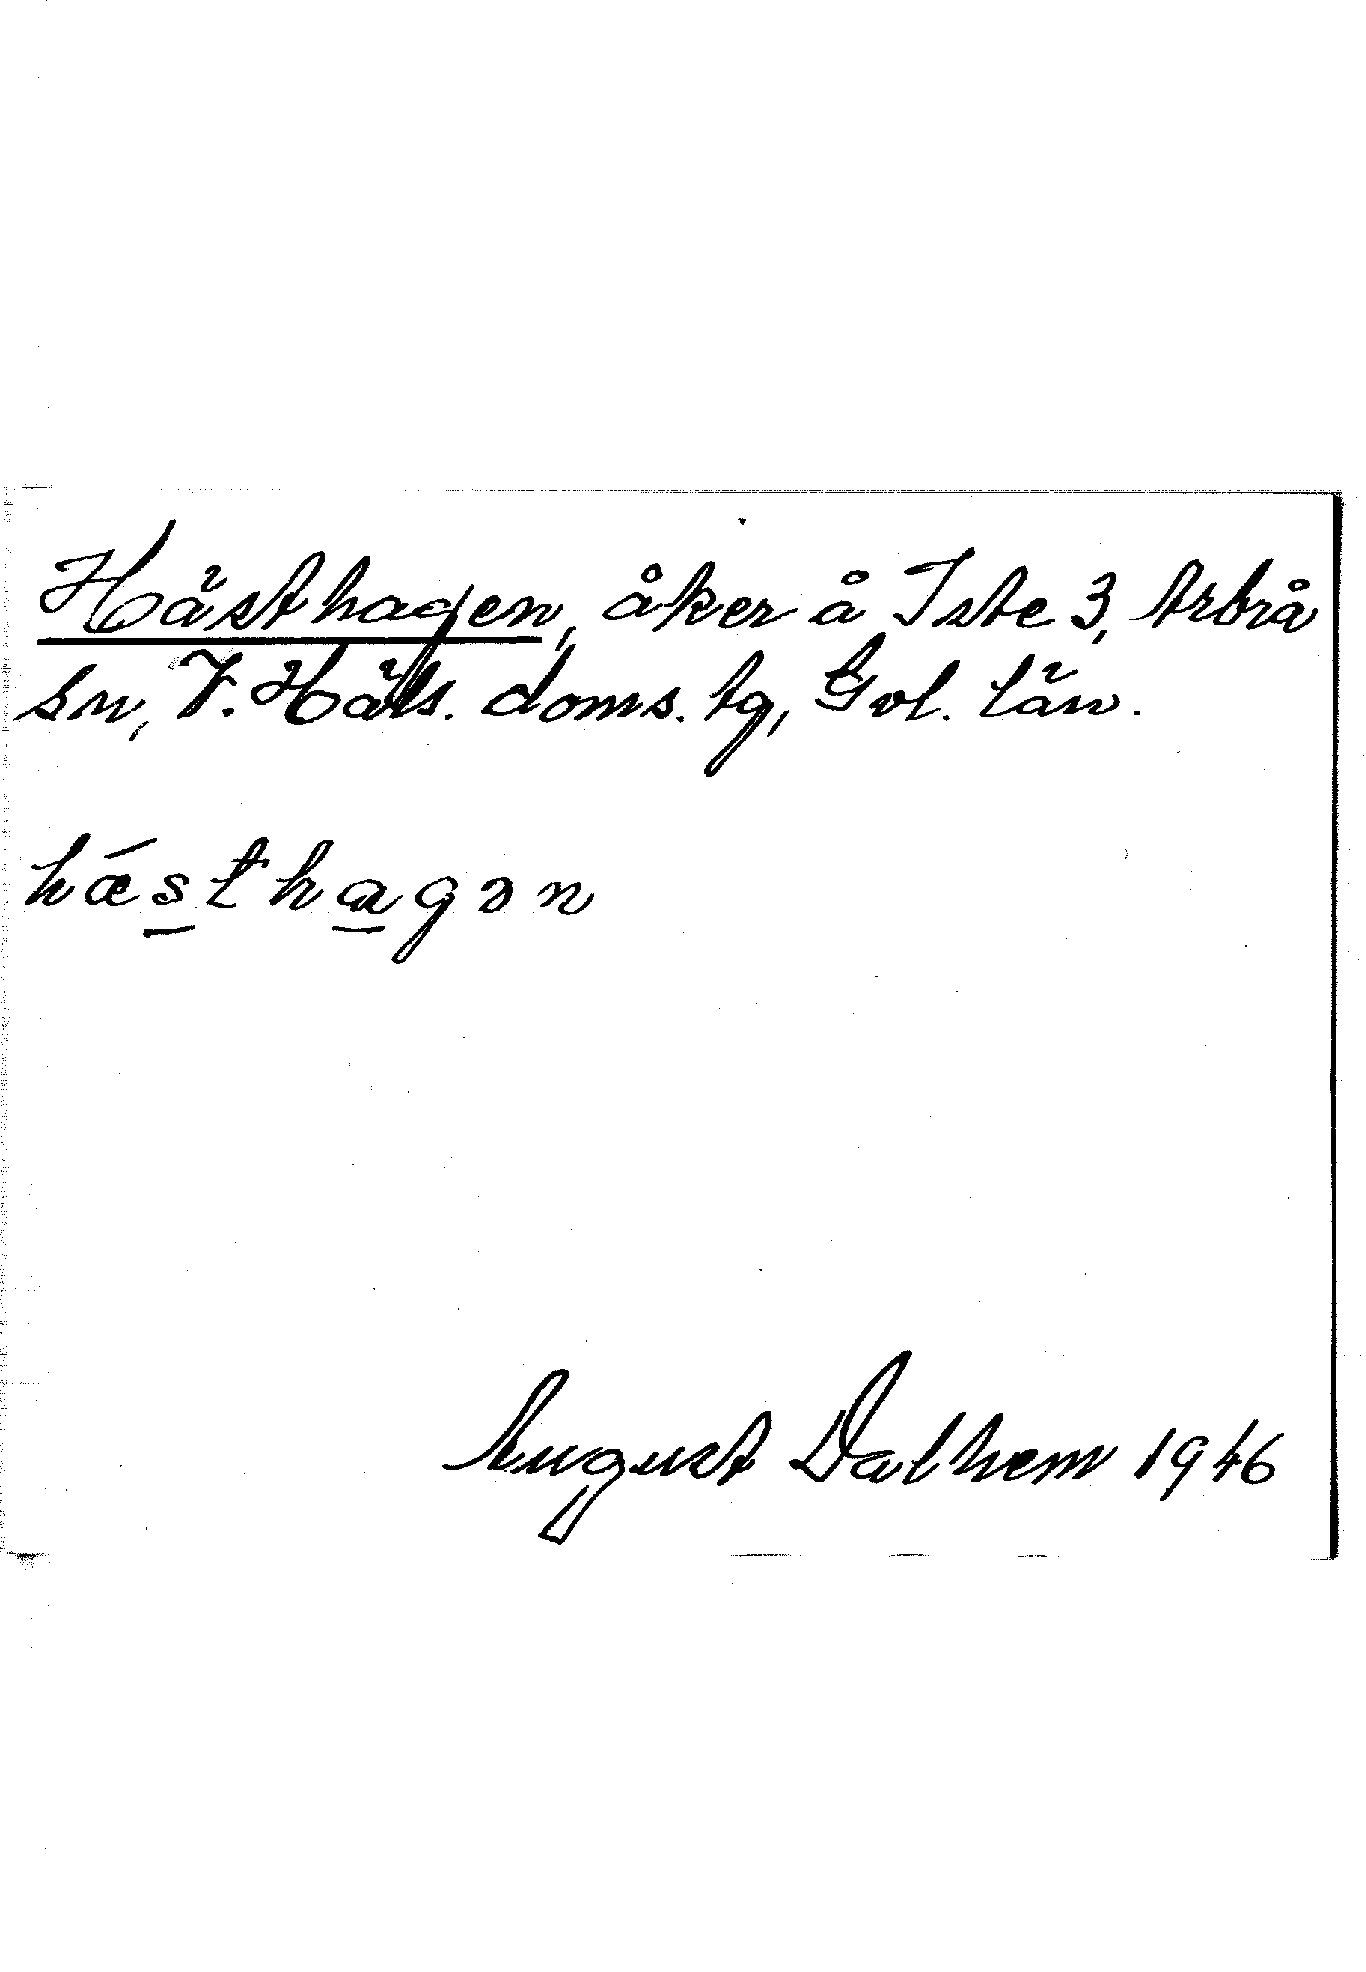 Hästhagen, åker å Iste 3, Arbrå
sn, V. Häls. doms. tg, Gvl. län.
hæ´s̲tha̲gən
August Dalhem 1946